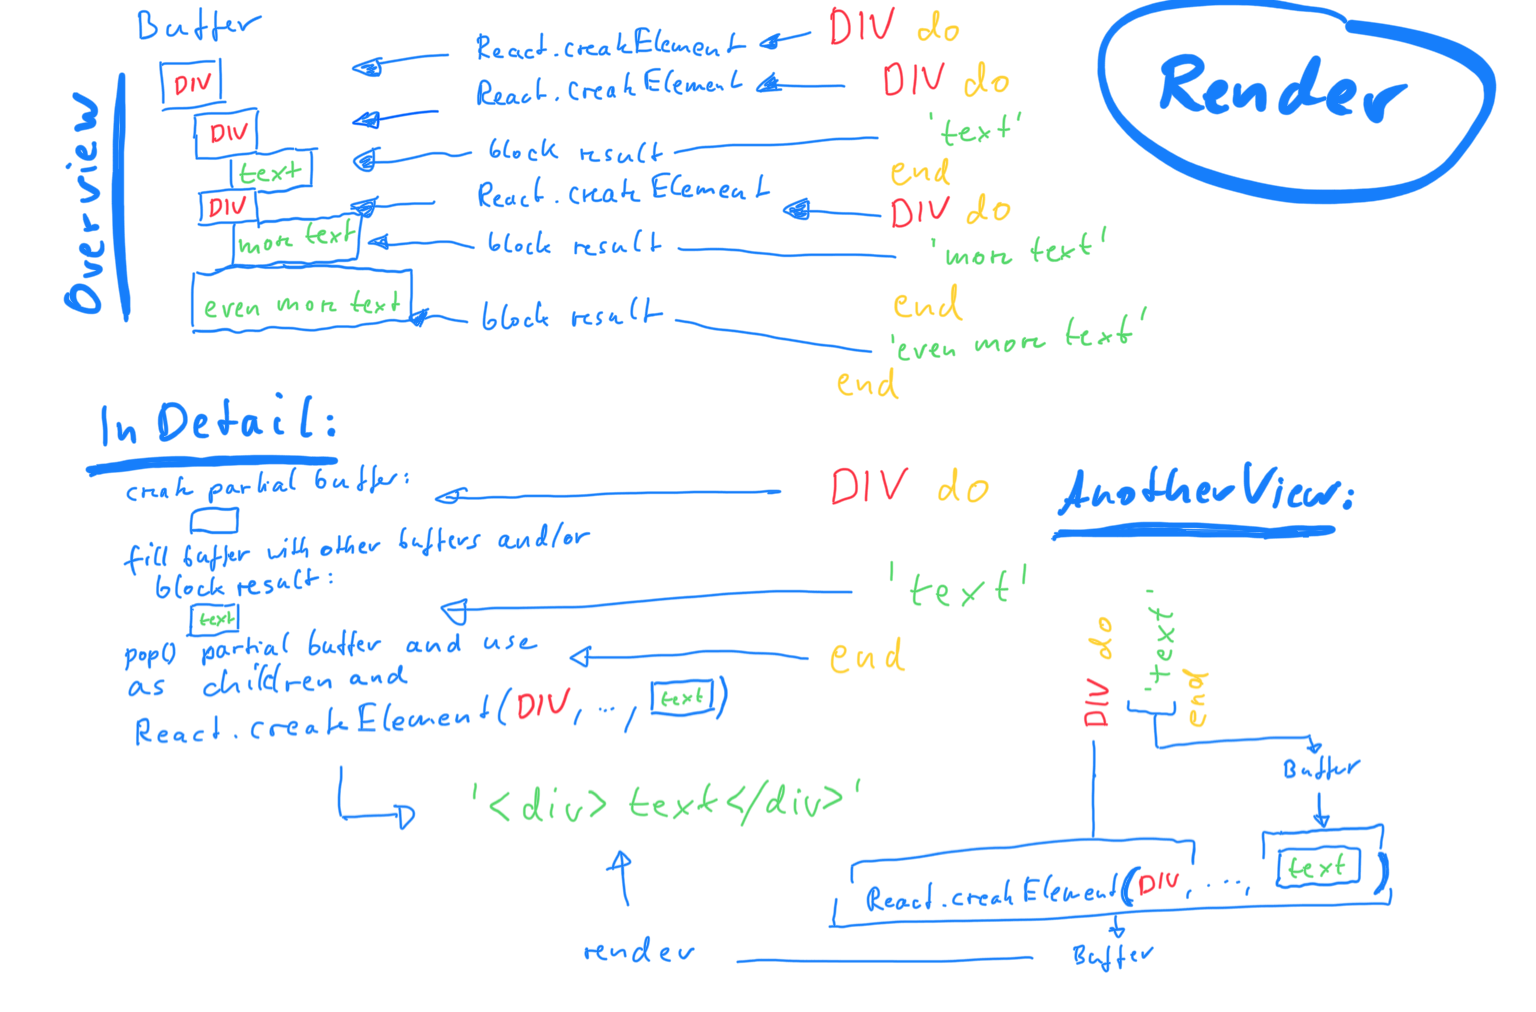 Render
Overview
Buffer
DIV
DIV
text
DIV
more text
even more text
React.createElement
React.createElement
block result
React.createElement
block result
block result
DIV do
DIV do
'text'
end
DIV do
'more text'
end
'even more text'
end
In Detail:
create partial buffer:
fill buffer with other buffers and/or
block result:
text
pop() partial buffer and use
as children and
React.createElement(DIV, ..., text)
'<div> text</div>'
render
DIV do
'text'
end
Another View:
DIV do
'text'
end
Buffer
React.createElement(DIV, ..., text)
Buffer